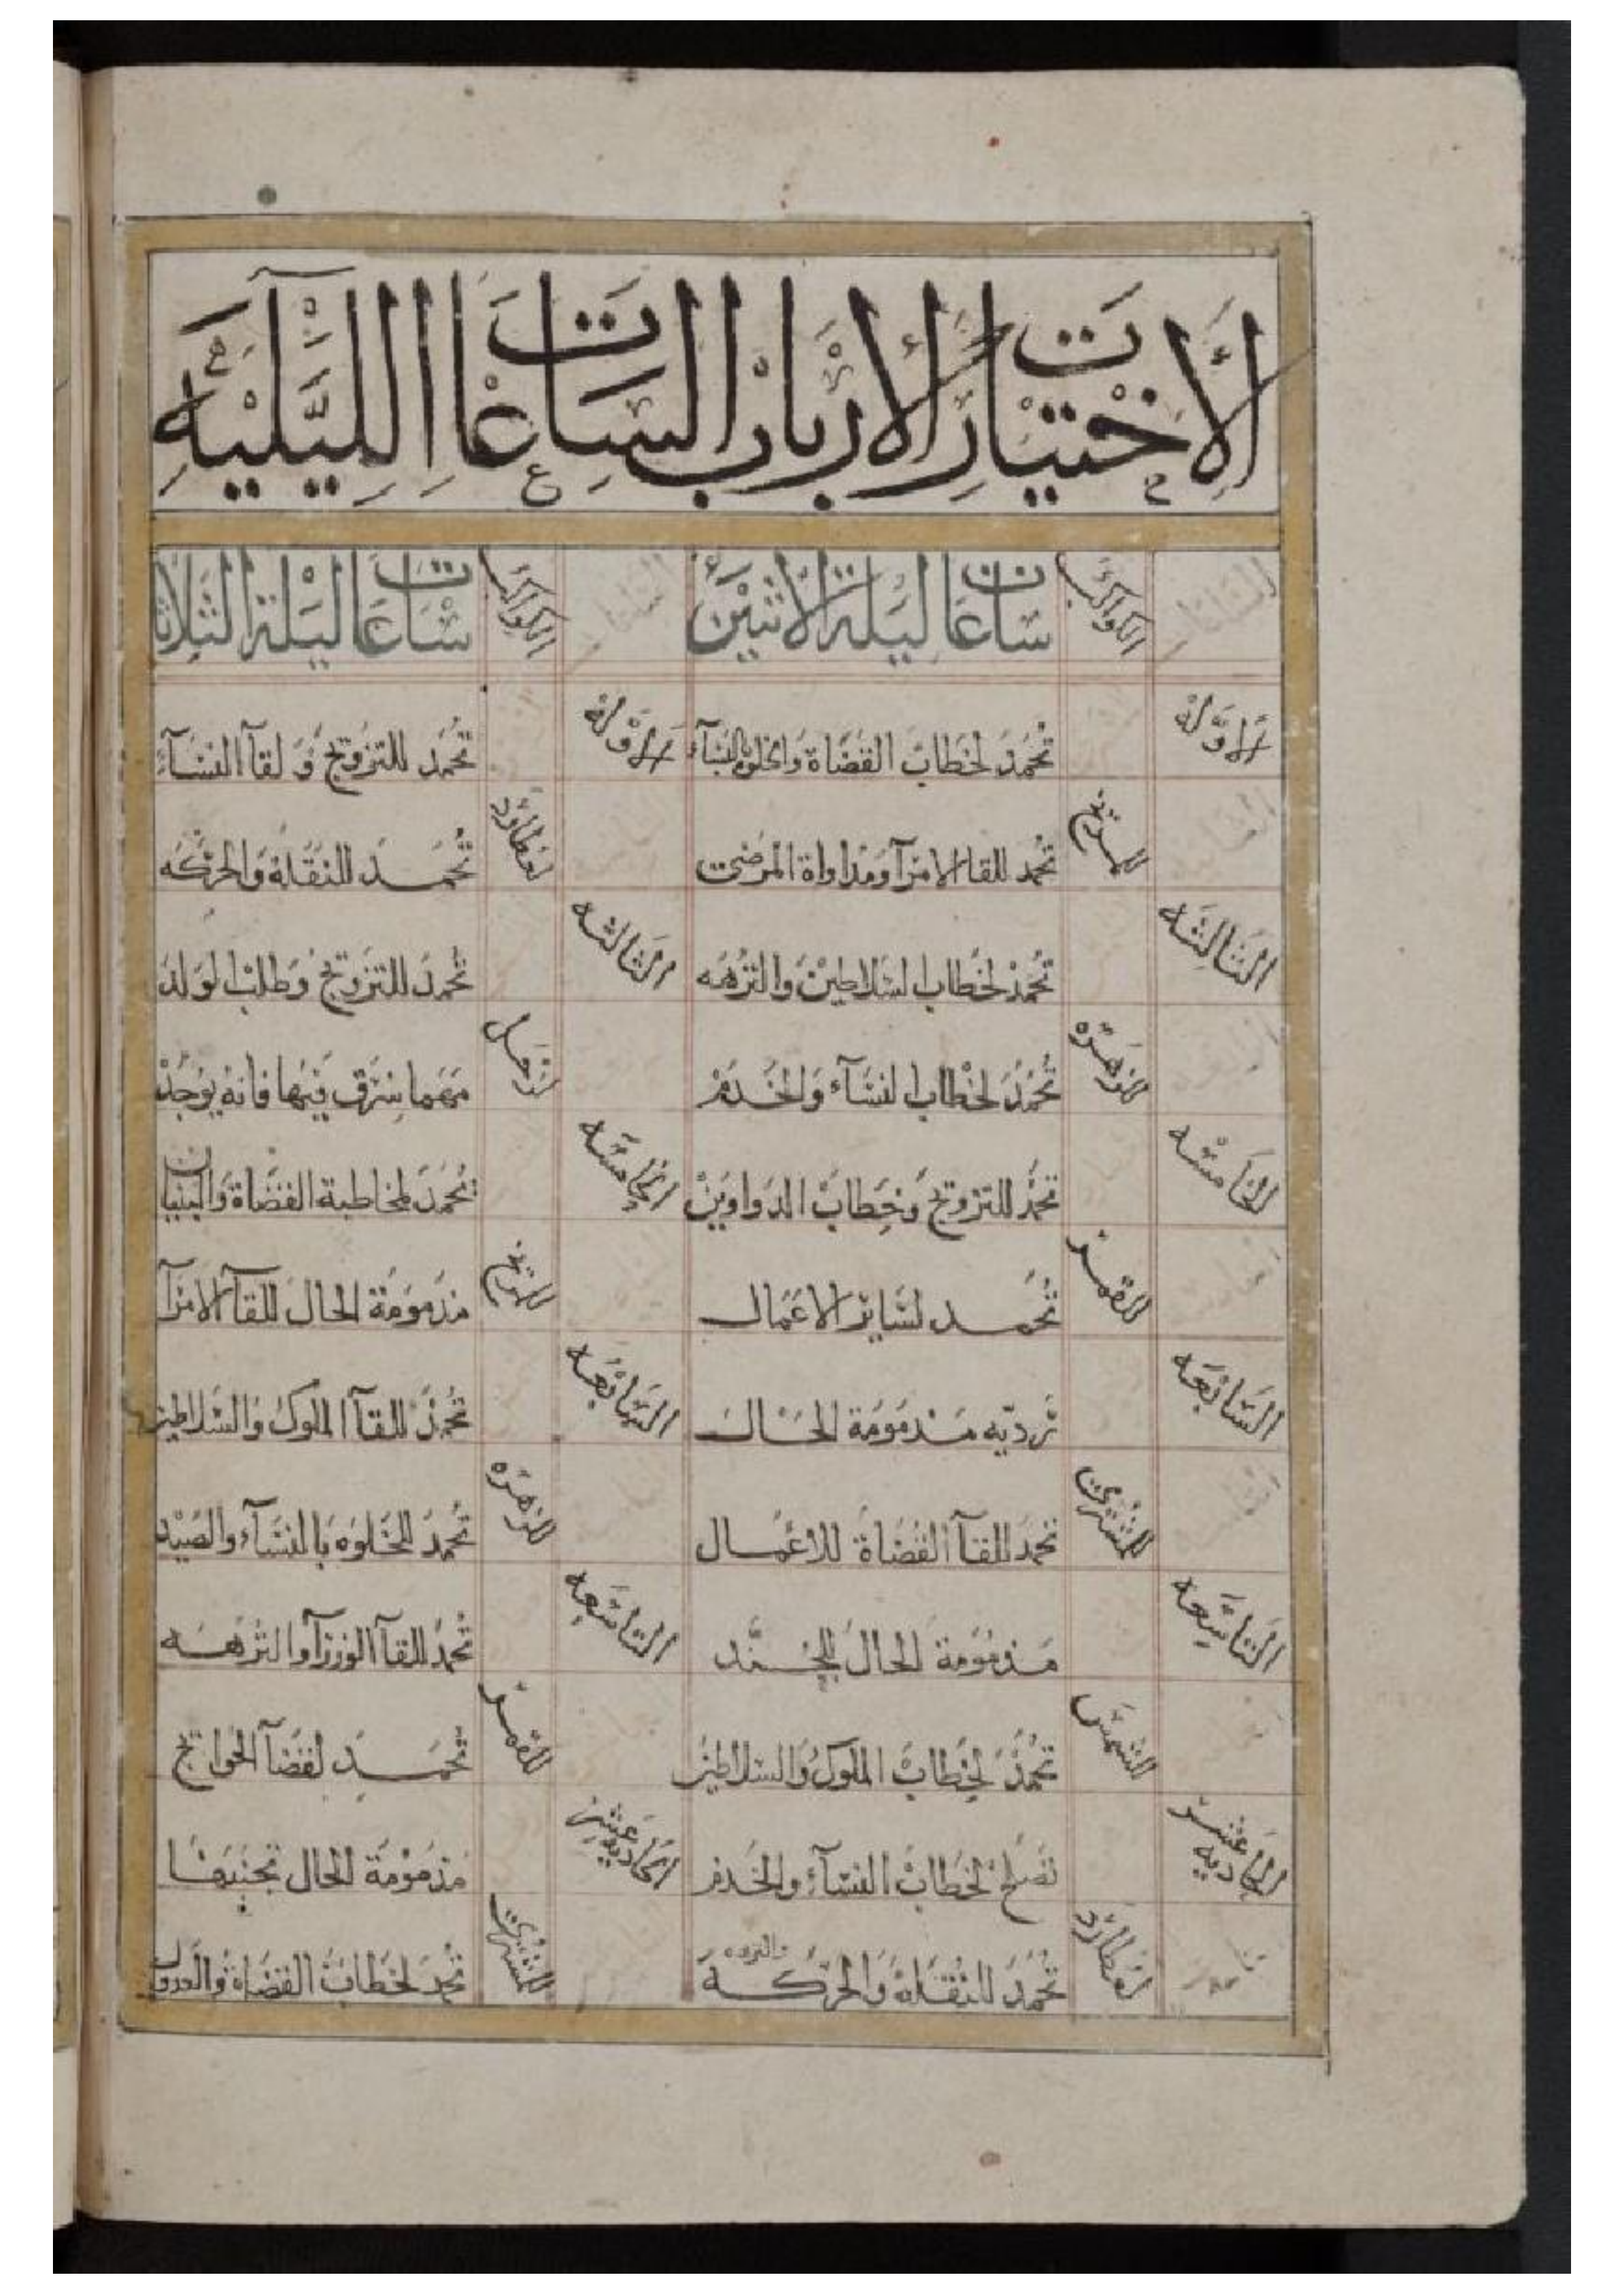 الاختيارات لارباب الساعات الليليه
الساعات الكواكب ساعات ليلة الاثنين الساعات الكواكب ساعات ليلة الثلاثا
الاوله تحمد لخطاب القضاة والخلوه بالنسآء الاوله تحمد للتزويج ولقآ النسآء
للمريخ تحمد للقا الامرآ ومداواة المرضى لعطارد تحمد للنقلة والحركه
الثالثه تحمد لخطاب السلاطين والنزهه الثالثه تحمد للتزويج وطلب الولد
للزهره تحمد لخطاب النسآء والخدم لزحل مهما سرق فيها فانه يوجد
الخامسه تحمد للتزويج وخطاب الدواوين الخامسه تحمد لمخاطبة القضاة والبنيان
للقمر تحمد لسائر الاعمال للمريخ مذمومة الحال للقآ الامرآ
السابعه رديه مذمومة الحال السابعه تحمد للقآ الملوك والسلاطين
للمشتري تحمد للقآ القضاة للاعمال للزهره تحمد للخلوه بالنسآء والصيد
التاسعه مذمومة الحال للجند التاسعه تحمد للقآ الوزرآ والنزهه
للشمس تحمد لخطاب الملوك والسلاطين للقمر تحمد لقضآ الحوايج
الحاديه عشر تصلح لخطاب النسآء والخدم الحاديه عشر مذمومة الحال تجنبها
لعطارد تحمد للنقلة والحركة للمشتري تحمد لخطاب القضاة والعدول